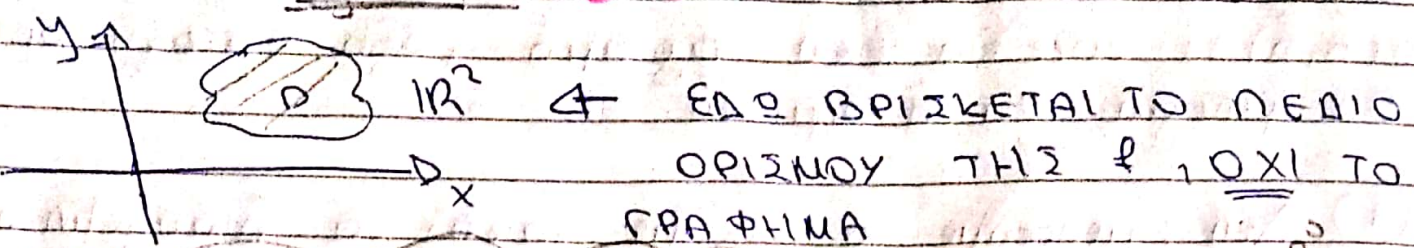 y D ℝ² ← ΕΔΩ ΒΡΙΣΚΕΤΑΙ ΤΟ ΠΕΔΙΟ
x ΟΡΙΣΜΟΥ ΤΗΣ f, ΟΧΙ ΤΟ
ΓΡΑΦΗΜΑ